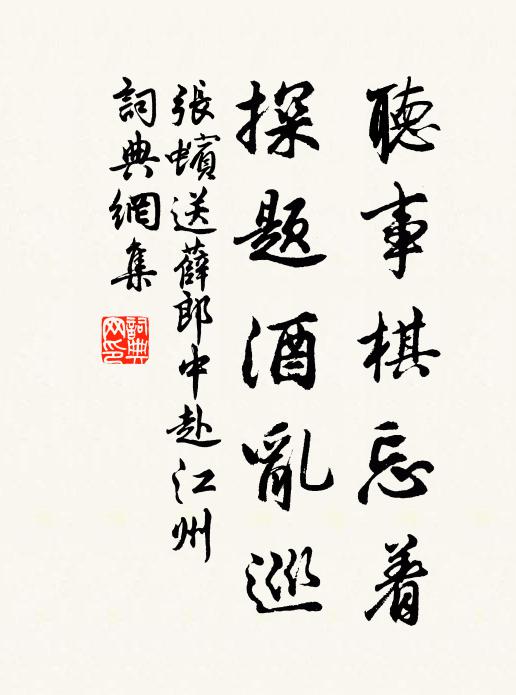 聽事棋忘着
探題酒亂巡
張蠙送薛郎中赴江州
詞典網集
詞典網印